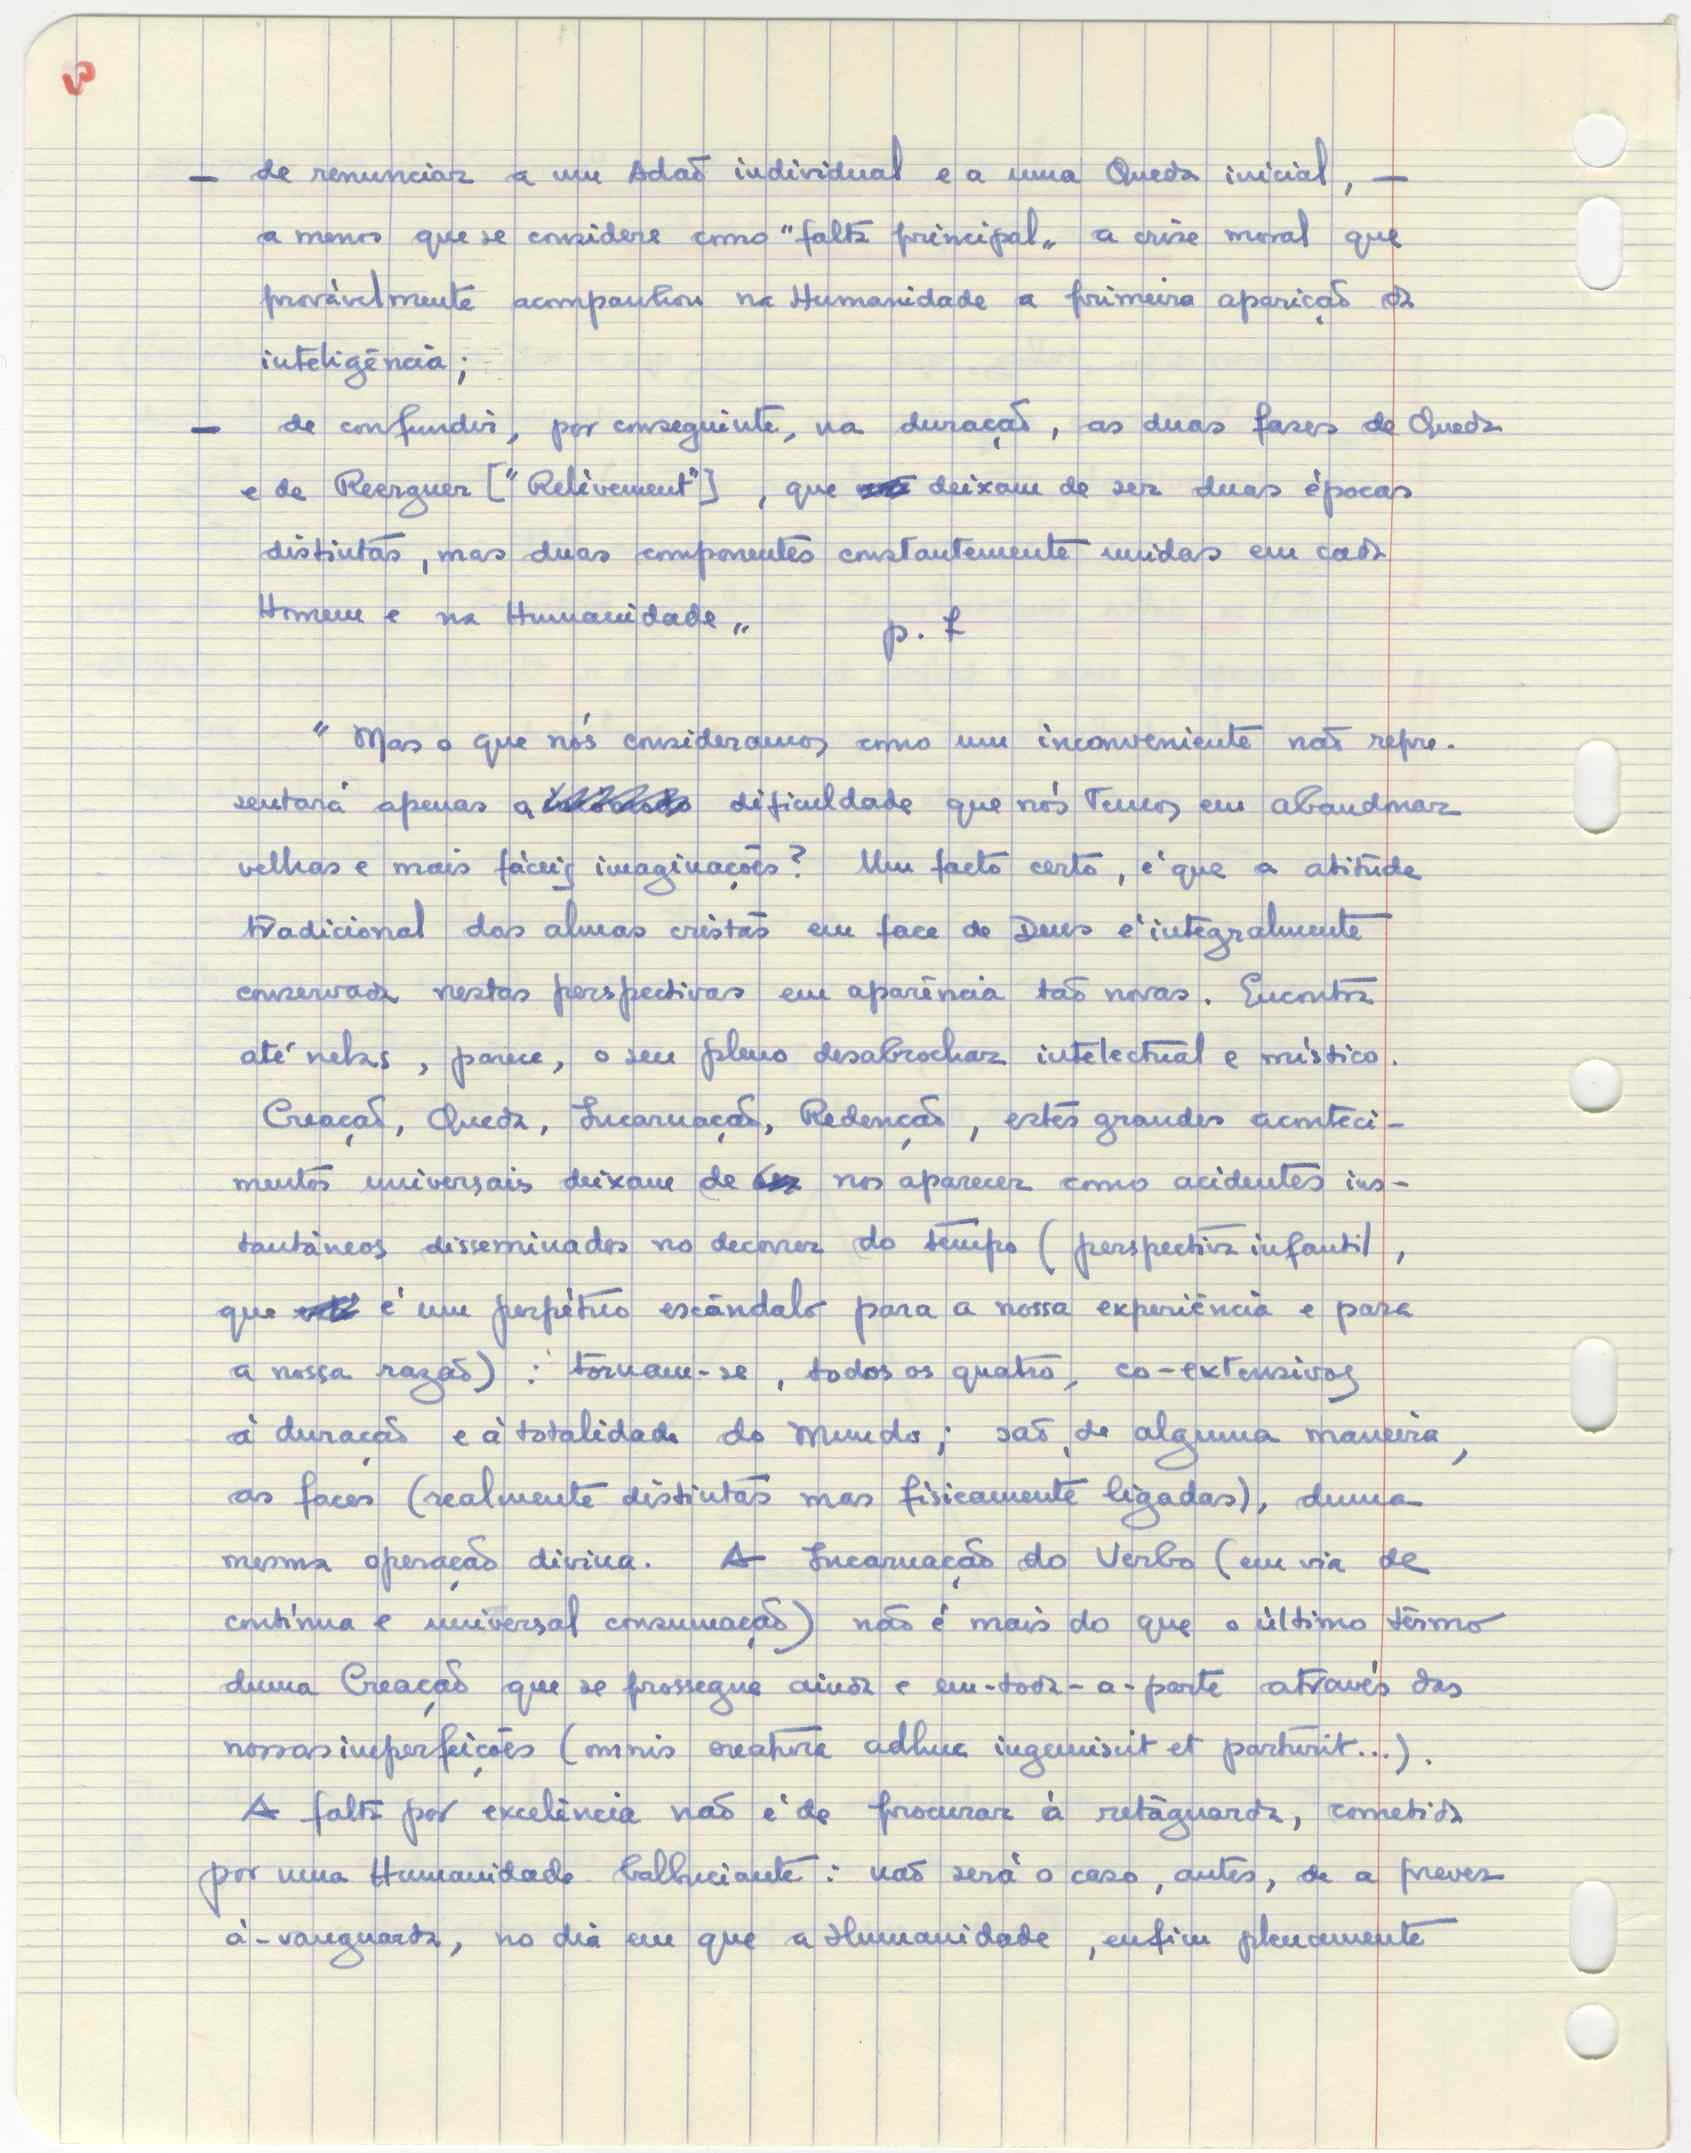 — de renunciar a um Adão individual e a uma Queda inicial, —
a menos que se considere como "falta principal" a crise moral que
provàvelmente acompanhou na Humanidade a primeira aparição da
inteligência;
— de confundir, por conseguinte, na duração, as duas fases de Queda
e de Reerguer ["Relèvement"], que deixam de ser duas épocas
distintas, mas duas componentes constantemente unidas em cada
Homem e na Humanidade" p. 7
"Mas o que nós consideramos como um inconveniente não repre-
sentará apenas a dificuldade que nós temos em abandonar
velhas e mais fáceis imaginações? Um facto certo, é que a atitude
tradicional das almas cristãs em face de Deus é integralmente
conservada nestas perspectivas em aparência tão novas. Encontra
até nelas, parece, o seu pleno desabrochar intelectual e místico.
Creação, Queda, Incarnação, Redenção, estes grandes aconteci-
mentos universais deixam de nos aparecer como acidentes ins-
tantâneos disseminados no decorrer do tempo (perspectiva infantil,
que é um perpétuo escândalo para a nossa experiência e para
a nossa razão) : tornam-se, todos os quatro, co-extensivos
à duração e à totalidade do Mundo; são, de alguma maneira,
as faces (realmente distintas mas fisicamente ligadas), duma
mesma operação divina. A Incarnação do Verbo (em via de
contínua e universal consumação) não é mais do que o último têrmo
duma Creação que se prossegue ainda e em-toda-a-parte através das
nossas imperfeições (omnis creatura adhuc ingemiscit et parturit...).
A falta por excelência não é de procurar à retaguarda, cometida
por uma Humanidade balbuciante : não será o caso, antes, de a prever
à-vanguarda, no dia em que a Humanidade, enfim plenamente